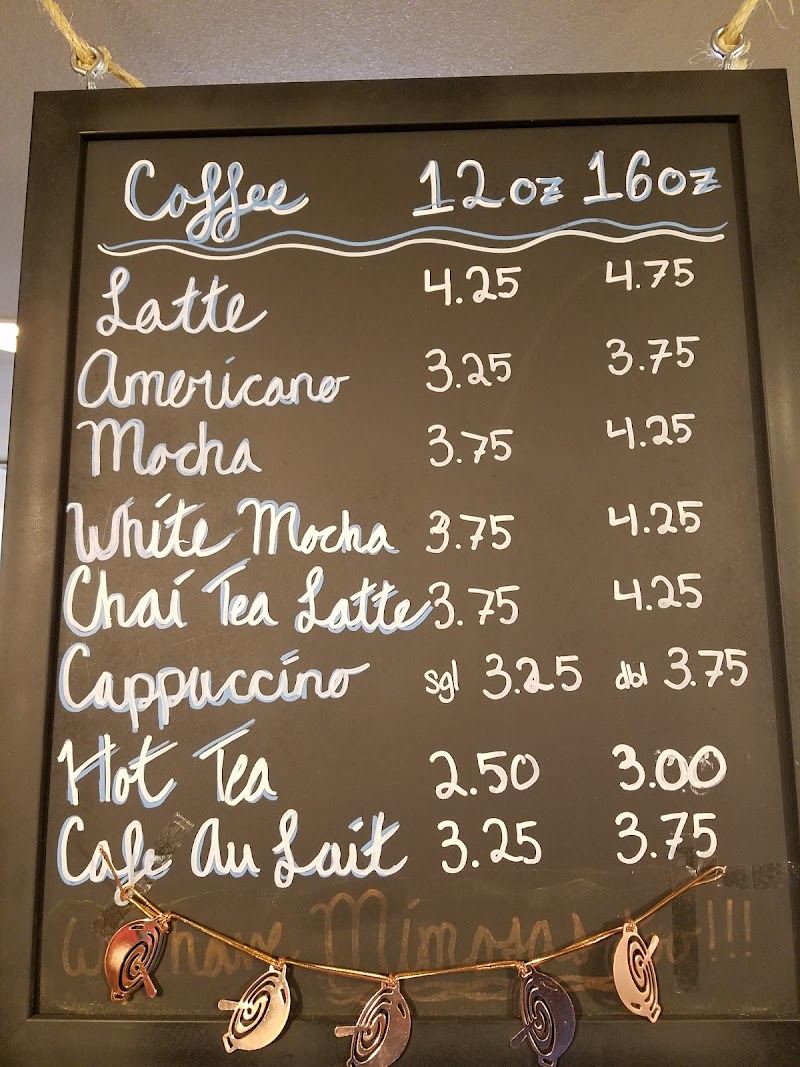 Coffee 12oz 16oz
Latte 4.25 4.75
Americano 3.25 3.75
Mocha 3.75 4.25
White Mocha 3.75 4.25
Chai Tea Latte 3.75 4.25
Cappuccino sgl 3.25 dbl 3.75
Hot Tea 2.50 3.00
Cafe Au Lait 3.25 3.75
We have Mimosas !!!